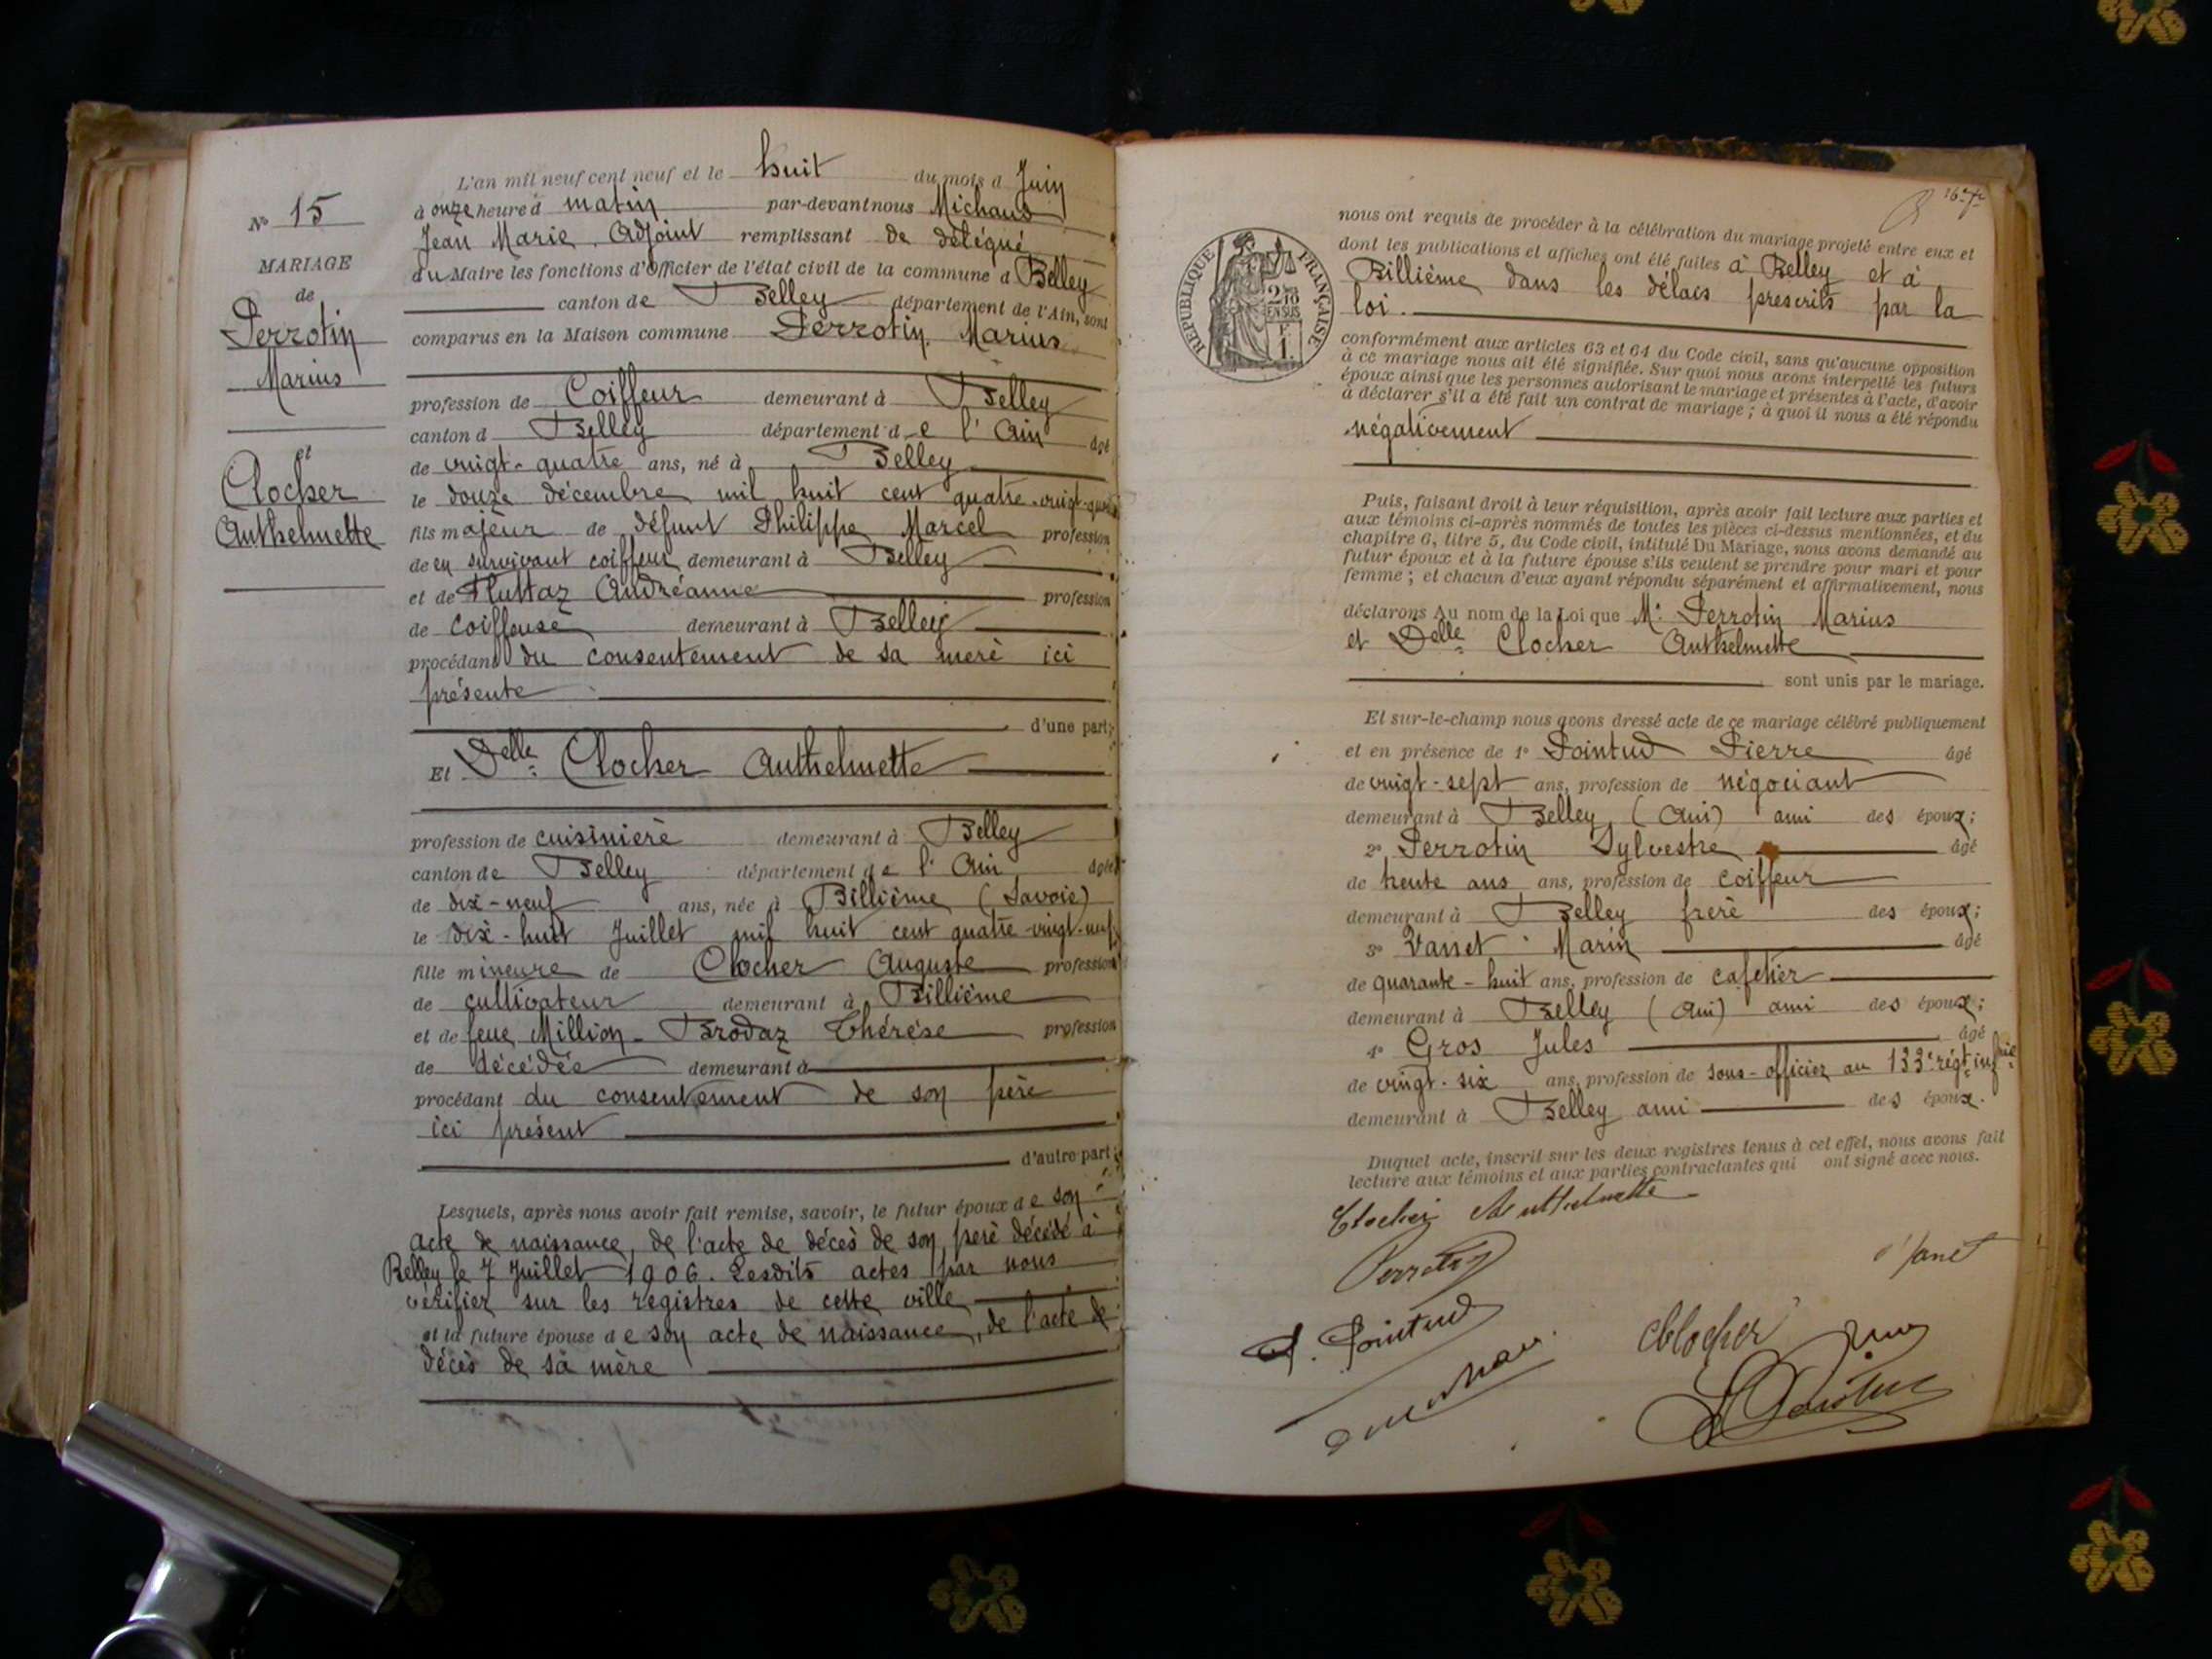 N° 15
MARIAGE
de
Perrotin
Marius
et
Clocher
Anthelmette
L'an mil neuf cent neuf et le huit du mois d Juin
à onze heure d matin par-devant nous Michaud
Jean Marie, Adjoint remplissant de délégué
du Maire les fonctions d'Officier de l'état civil de la commune d Belley
canton de Belley département de l'Ain, sont
comparus en la Maison commune Perrotin Marius
profession de Coiffeur demeurant à Belley
canton d Belley département d e l'Ain âgé
de vingt-quatre ans, né à Belley
le douze décembre mil huit cent quatre-vingt-quatre
fils majeur de défunt Philippe Marcel profession
de en survivant coiffeur demeurant à Belley
et de Pluttaz Andréanne profession
de coiffeuse demeurant à Belley
procédant du consentement de sa mère ici
présente
d'une part;
Et Delle Clocher Anthelmette
profession de cuisinière demeurant à Belley
canton de Belley département de l'Ain âgée
de dix-neuf ans, née à Billième (Savoie)
le dix-huit Juillet mil huit cent quatre-vingt-neuf
fille mineure de Clocher Auguste profession
de cultivateur demeurant à Billième
et de feue Million-Brodaz Thérèse profession
de décédée demeurant à
procédant du consentement de son père
ici présent
d'autre part;
Lesquels, après nous avoir fait remise, savoir, le futur époux de son
acte de naissance, de l'acte de décès de son père décédé à
Belley le 7 Juillet 1906. Lesdits actes par nous
vérifier sur les registres de cette ville
et la future épouse de son acte de naissance, de l'acte de
décès de sa mère
nous ont requis de procéder à la célébration du mariage projeté entre eux et
dont les publications et affiches ont été faites à Belley et à
Billième dans les délais prescrits par la
loi.
RÉPUBLIQUE FRANÇAISE
2/10
EN SUS
F.
1.
conformément aux articles 63 et 64 du Code civil, sans qu'aucune opposition
à ce mariage nous ait été signifiée. Sur quoi nous avons interpellé les futurs
époux ainsi que les personnes autorisant le mariage et présentes à l'acte, d'avoir
à déclarer s'il a été fait un contrat de mariage ; à quoi il nous a été répondu
négativement
Puis, faisant droit à leur réquisition, après avoir fait lecture aux parties et
aux témoins ci-après nommés de toutes les pièces ci-dessus mentionnées, et du
chapitre 6, titre 5, du Code civil, intitulé Du Mariage, nous avons demandé au
futur époux et à la future épouse s'ils veulent se prendre pour mari et pour
femme ; et chacun d'eux ayant répondu séparément et affirmativement, nous
déclarons Au nom de la Loi que Mr Perrotin Marius
et Delle Clocher Anthelmette
sont unis par le mariage.
Et sur-le-champ nous avons dressé acte de ce mariage célébré publiquement
et en présence de 1° Pointud Pierre âgé
de vingt-sept ans, profession de négociant
demeurant à Belley (Ain) ami des époux;
2° Perrotin Sylvestre âgé
de trente ans ans, profession de coiffeur
demeurant à Belley frère des époux;
3° Vanet Marin âgé
de quarante-huit ans, profession de cafetier
demeurant à Belley (Ain) ami des époux;
4° Gros Jules âgé
de vingt-six ans, profession de sous-officier au 133e régt infrie
demeurant à Belley ami des époux.
Duquel acte, inscrit sur les deux registres tenus à cet effet, nous avons fait
lecture aux témoins et aux parties contractantes qui ont signé avec nous.
Clocher Anthelmette
Perrotin
P. Pointud
Clocher